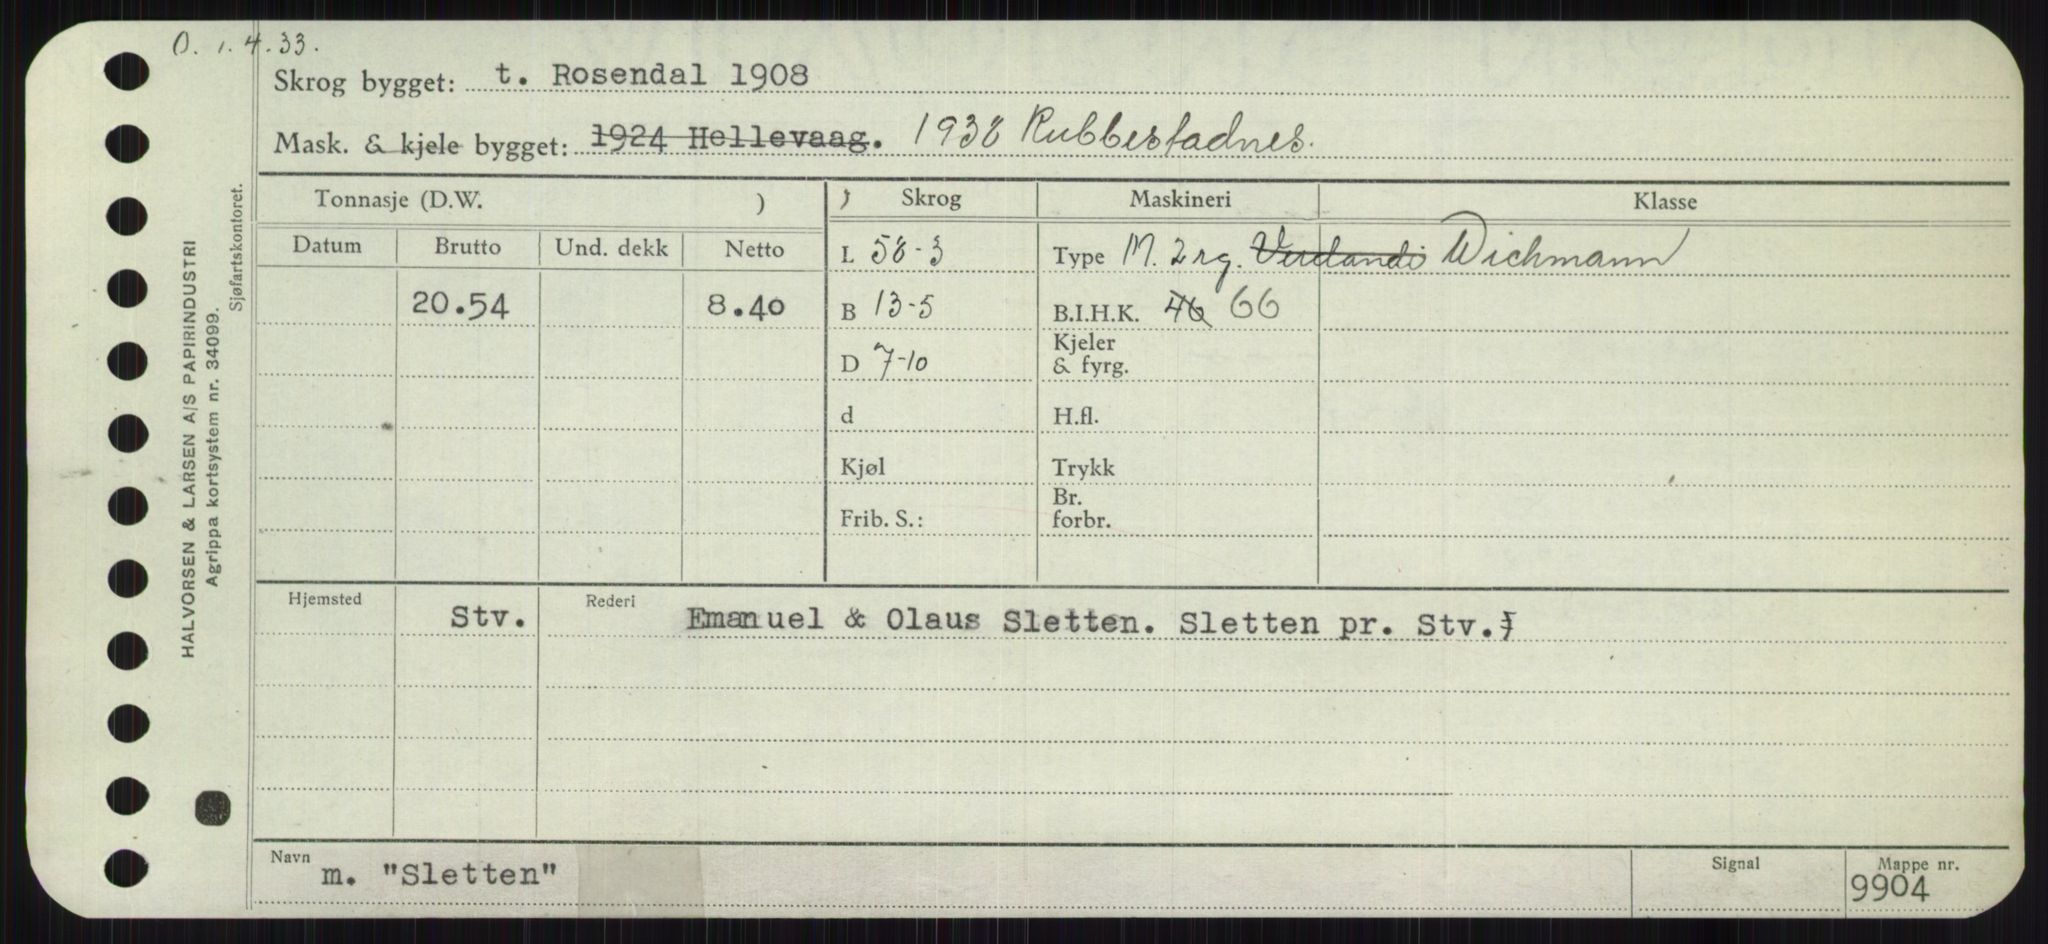 O. 1.4.33.
Skrog bygget: t. Rosendal 1908
Mask. & kjele bygget: 1924 Hellevaag. 1938 Rubbestadnes.
Tonnasje (D.W. ) Skrog Maskineri Klasse
Datum Brutto Und. dekk Netto L 58-3 Type M. 2 rg. Verdandi Wichmann
20.54 8.40 B 13-5 B.I.H.K. 46 66
D 7-10 Kjeler & fyrg.
d H.fl.
Kjøl Trykk
Frib. S.: Br. forbr.
Hjemsted Stv. Rederi Emanuel & Olaus Sletten. Sletten pr. Stv.
Navn m. "Sletten" Signal Mappe nr. 9904
HALVORSEN & LARSEN A/S PAPIRINDUSTRI
Agrippa kortsystem nr. 34099.
Sjøfartskontoret.